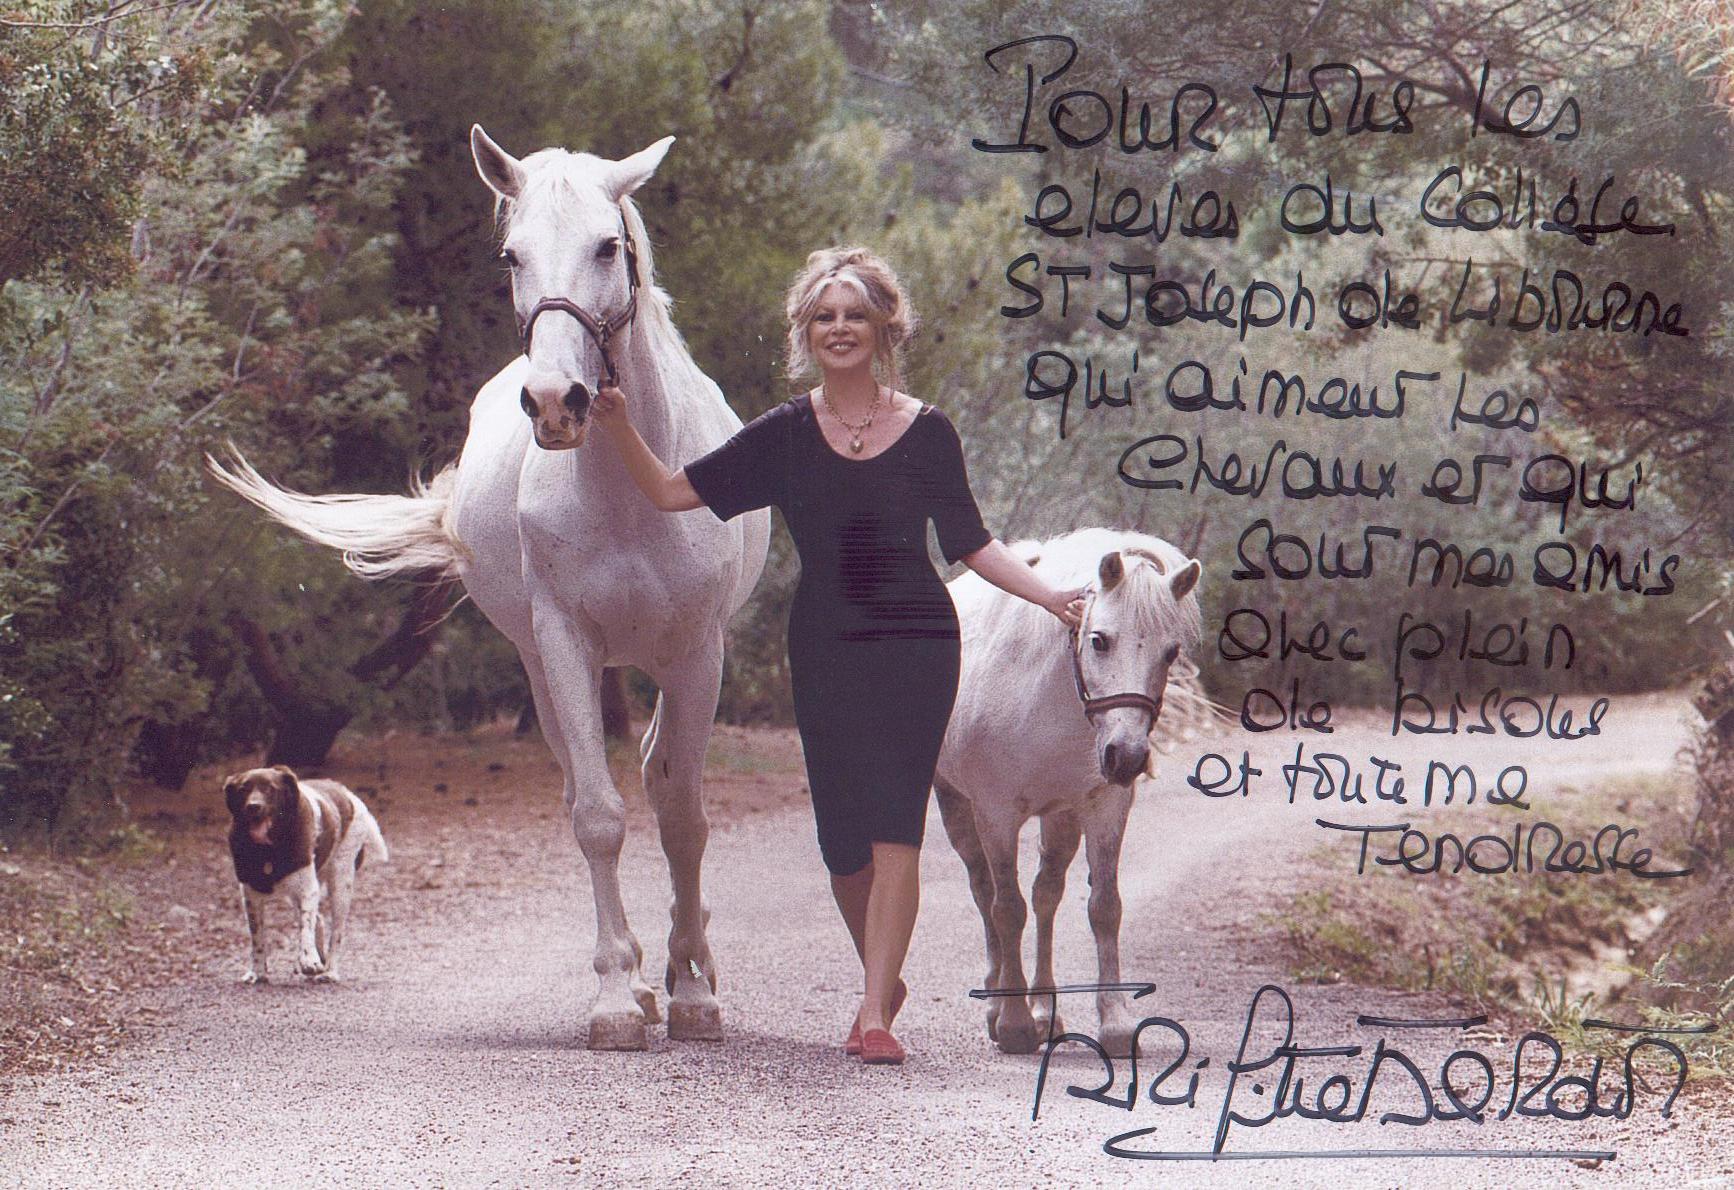 Pour tous les
eleves du Collège
ST Joseph de Libourne
qui aiment les
Chevaux et qui
sont mes amis
avec plein
de bisous
et toute ma
Tendresse
Brigitte Bardot